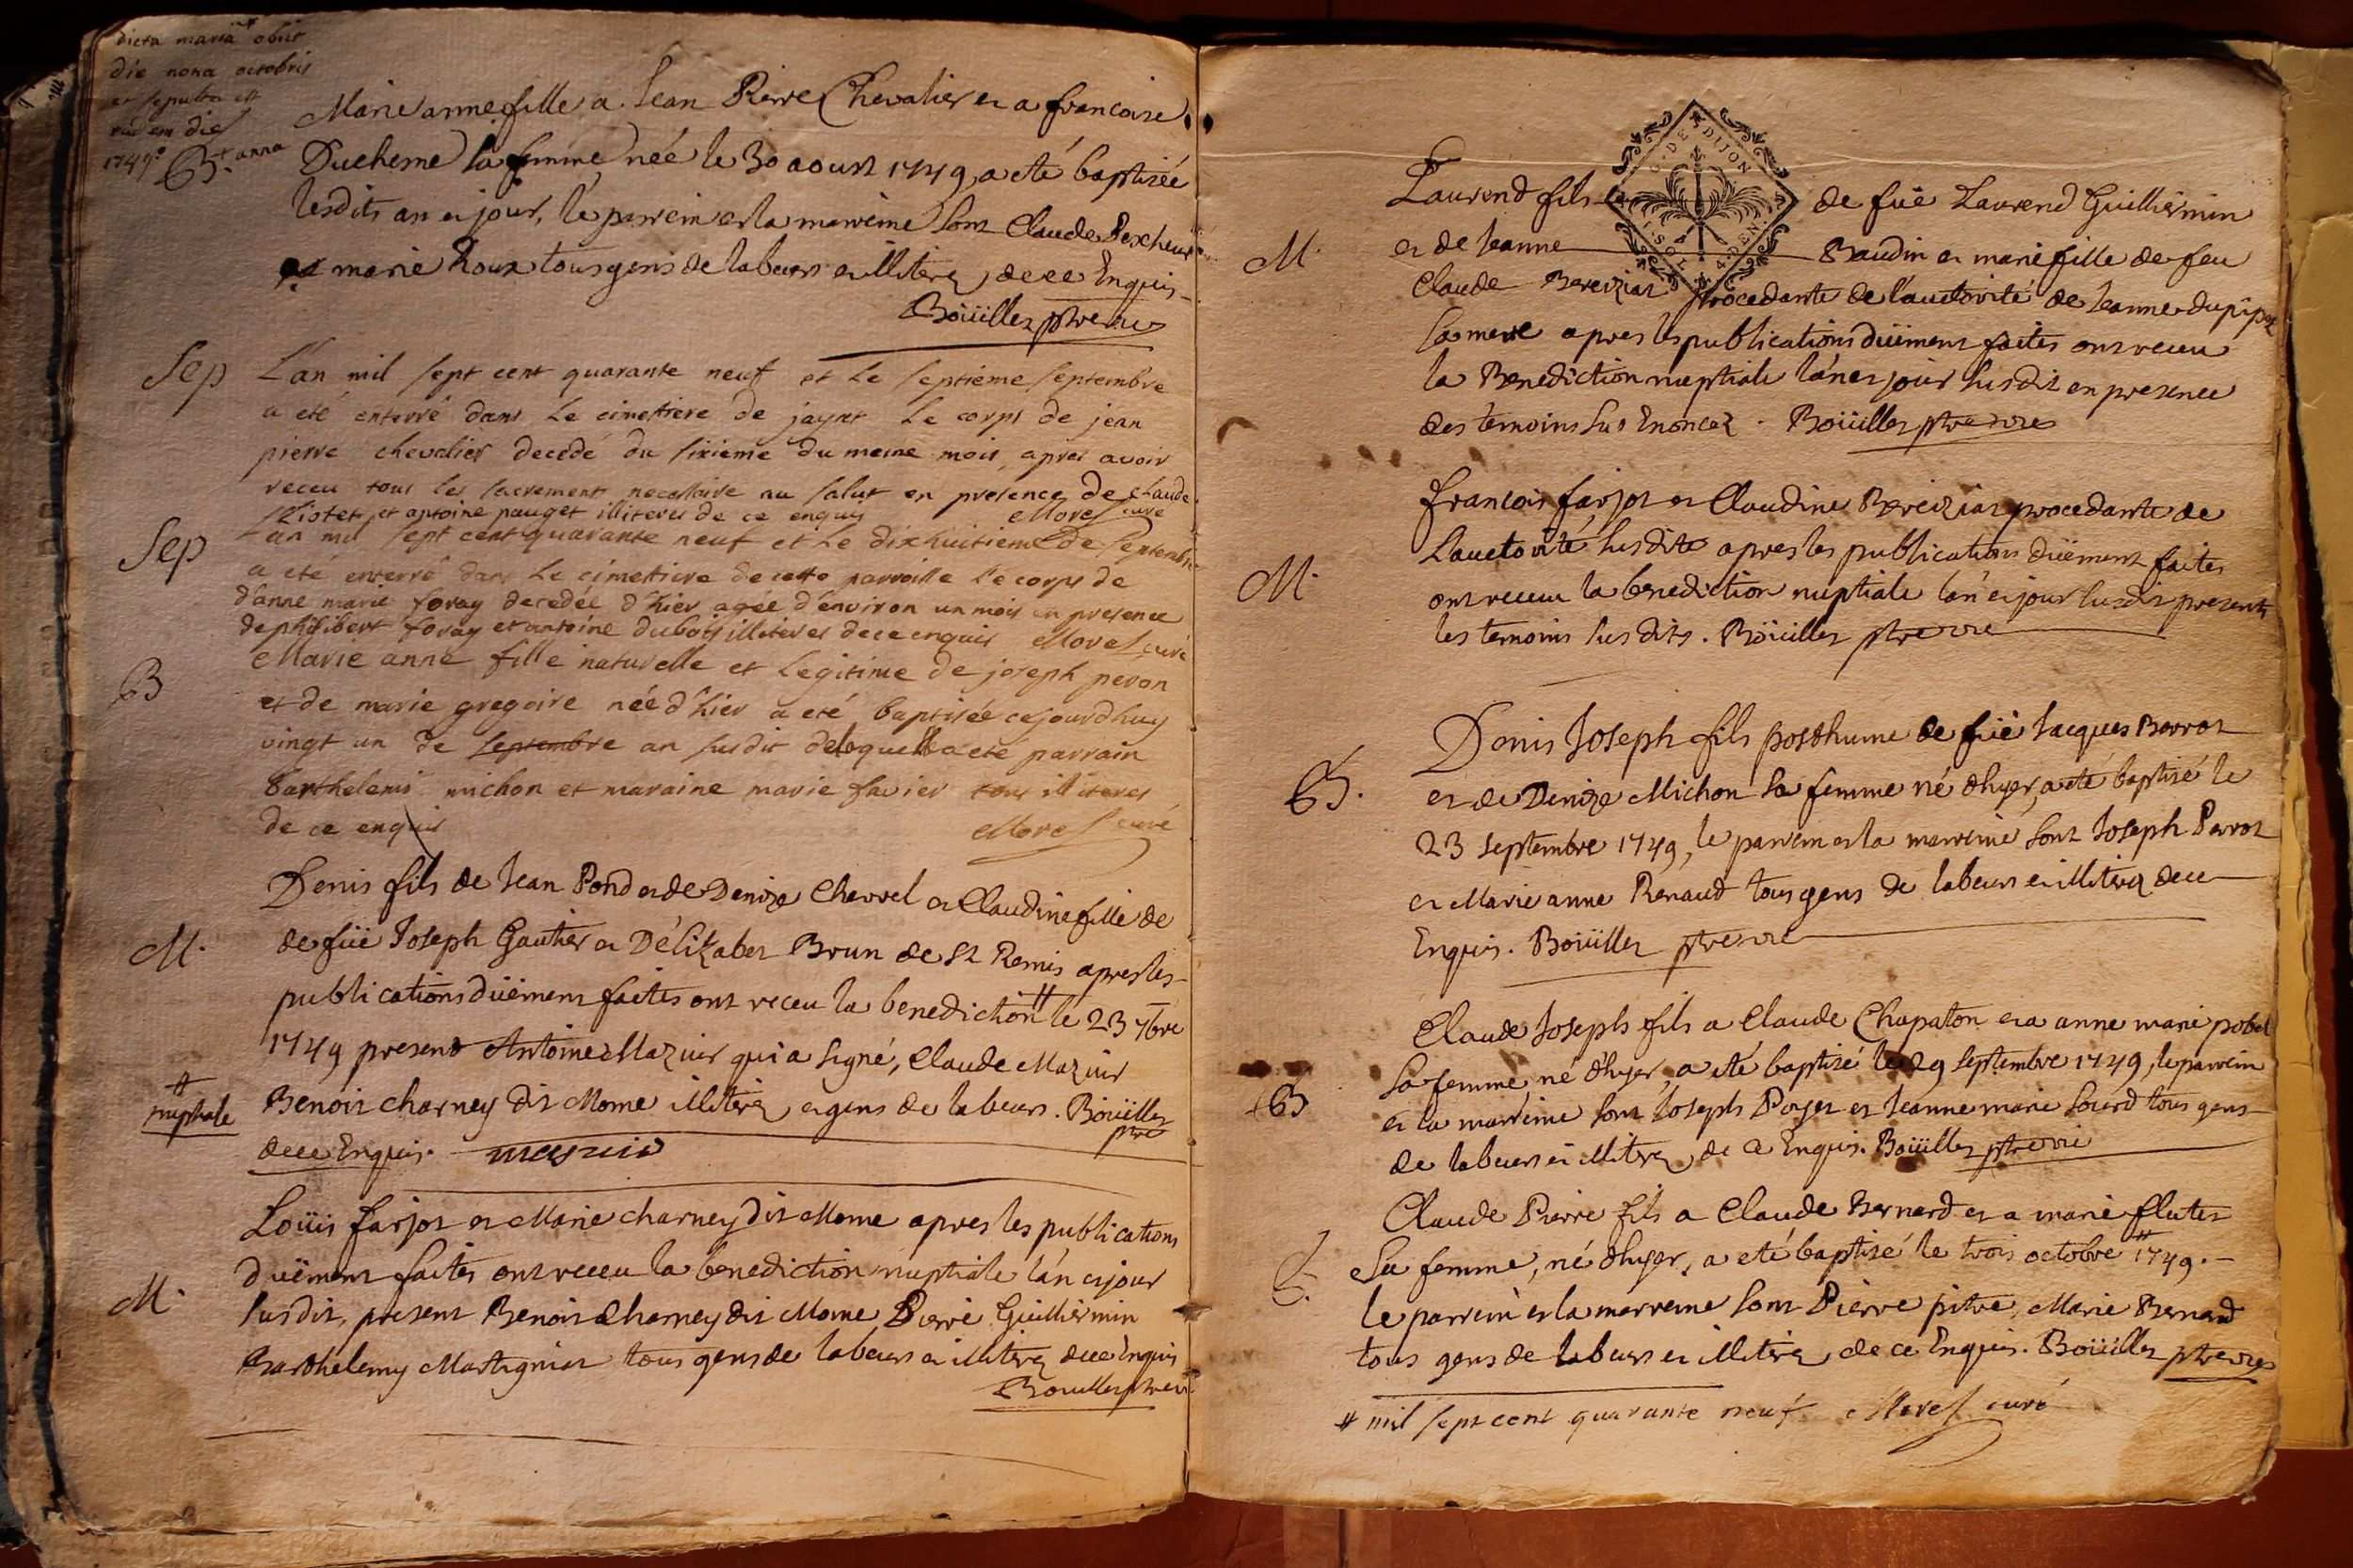 dicta maria obiit
die nona octobris
et sepulta est
die
1749 + anna
B.
Marie anne fille a Jean Pierre Chevalier et a francoise
Duchesne sa femme née le 30 aoust 1749, a eté baptisée
lesdits an et jour, le parrein et la marreine sont Claude
et marie Roux tous gens de labeurs et illiterez, de ce Enquis
Boüillez ptre vic
Sep
L'an mil sept cent quarante neuf et le septieme septembre
a eté enterré dans le cimetiere de jayat le corps de jean
pierre chevalier decedé du sixieme du meme mois, apres avoir
receu tous les sacrement necessaire au salut en presence de claude
et antoine pauget illiteres de ce enquis Morel curé
Sep
L'an mil sept cent quarante neuf et le dixhuitieme de septembre
a eté enterré dans le cimetiere de cette parroisse le corps de
d'anne marie foray decedée d'hier agée d'environ un mois en presence
de philibert foray et antoine dubois illiteres de ce enquis Morel curé
B
Marie anne fille naturelle et legitime de joseph peron
et de marie gregoire née d'hier a eté baptisée cejourdhuy
vingt un de septembre an susdit de laquelle a eté parrain
barthelemi michon et maraine marie favier tous illiteres
de ce enquis Morel curé
M.
Denis fils de Jean Pond et de Denize Chervel et Claudine fille de
de füe Joseph Gautier et D'élizabet Brun de St Remis apres les
publications düement faites ont receu la benediction # le 23 7bre
1749 present Antoine Mazuir qui a signé, Claude Mazuir
# nuptiale
Benoit charney dit Mome illiterez et gens de labeurs. Boüillez
ptre
de ce Enquis. mazuir
M.
Loüis farjot et Marie charney dit Mome apres les publications
düement faites ont receu la benediction nuptiale l'an et jour
susdit, present Benoit Charney dit Mome Pierre Guillermin
Barthelemy Martignat tous gens de labeurs et illiterez de ce Enquis
Bouillez ptre vic
G. DE DIJON
Laurend fils de füe Laurend Guillermin
M.
et de Jeanne Baudin et marie fille de feu
Claude Bereiziat procedante de l'auctorité de Jeanne
sa mere apres les publications düement faites ont receu
la Benediction nuptiale l'an et jour susdit en presence
des temoins sus Enoncez. Boüillez ptre vic
francois farjot et Claudine Bereiziat procedante de
L'auctorité susdite apres les publications düement faites
M.
ont receu la benediction nuptiale l'an et jour susdit presents
les temoins susdits. Boüillez ptre vic
Denis Joseph fils posthume de füe Jacques Perrot
B.
et de Denize Michon sa femme né d'hyer, a eté baptisé le
23 septembre 1749, le parrein et la marreine sont Joseph Perrot
et Marie anne Renaud tous gens de labeurs et illiterez de ce
Enquis. Boüillez ptre vic
Claude Joseph fils a Claude Chapaton et a anne marie pobel
sa femme, né d'hyer, a eté baptisé le 29 septembre 1749, le parrein
B
et la marreine sont Joseph Poyet et Jeanne marie Sourd tous gens
de labeurs et illiterez, de ce Enquis. Boüillez ptre vic
Claude Pierre fils a Claude Bernard et a marie flutet
B.
sa femme, né d'hyer, a eté baptisé le trois octobre # 1749.
le parrein et la marreine sont Pierre pitre, Marie Bernard
tous gens de labeurs et illiterez, de ce Enquis. Boüillez ptre vic
# mil sept cent quarante neuf Morel curé